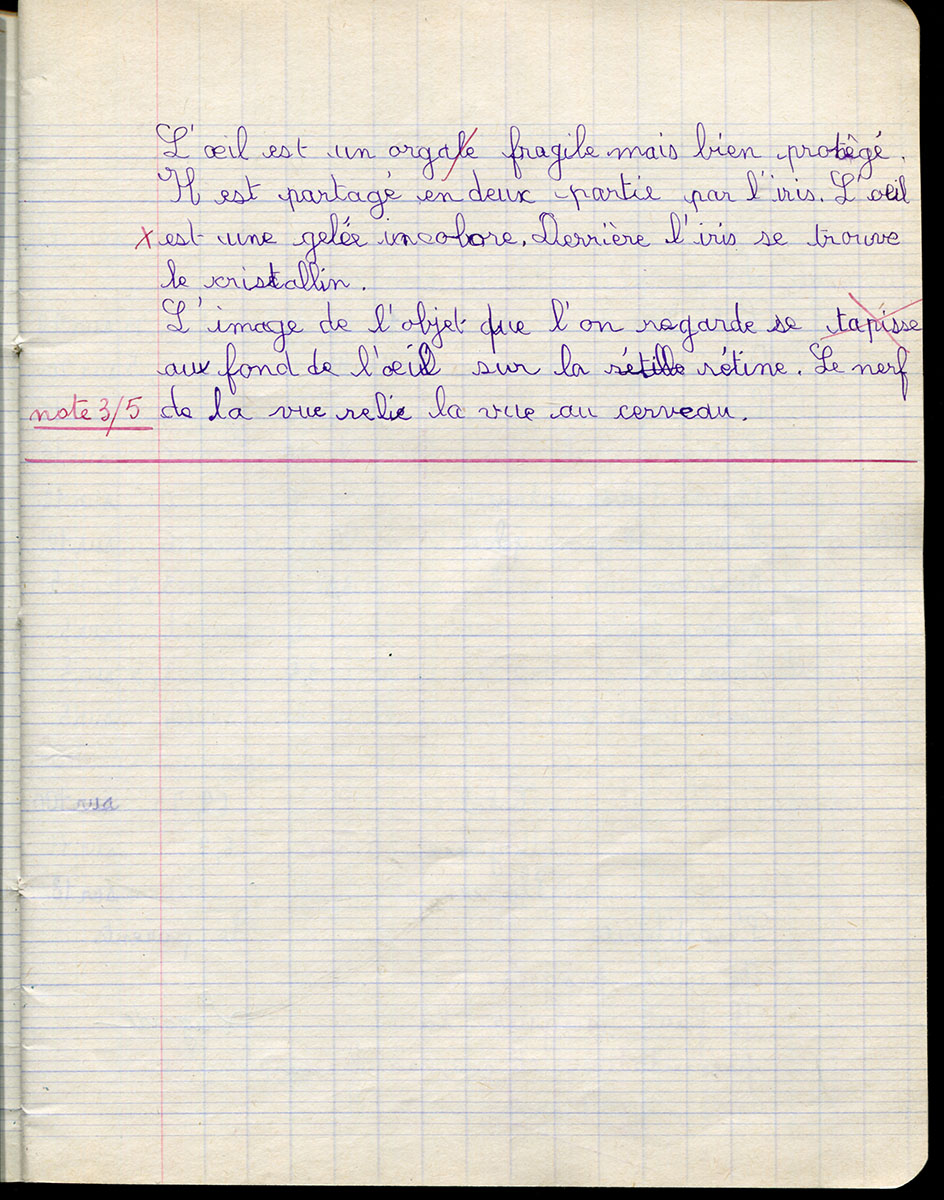 L'œil est un orgale fragile mais bien protégé.
Il est partagé en deux partie par l'iris. L'œil
x est une gelée incolore. Derrière l'iris se trouve
le cristallin.
L'image de l'objet que l'on regarde se tapisse
aux fond de l'œil sur la rétille rétine. Le nerf
note 3/5 de la vue relie la vue au cerveau.